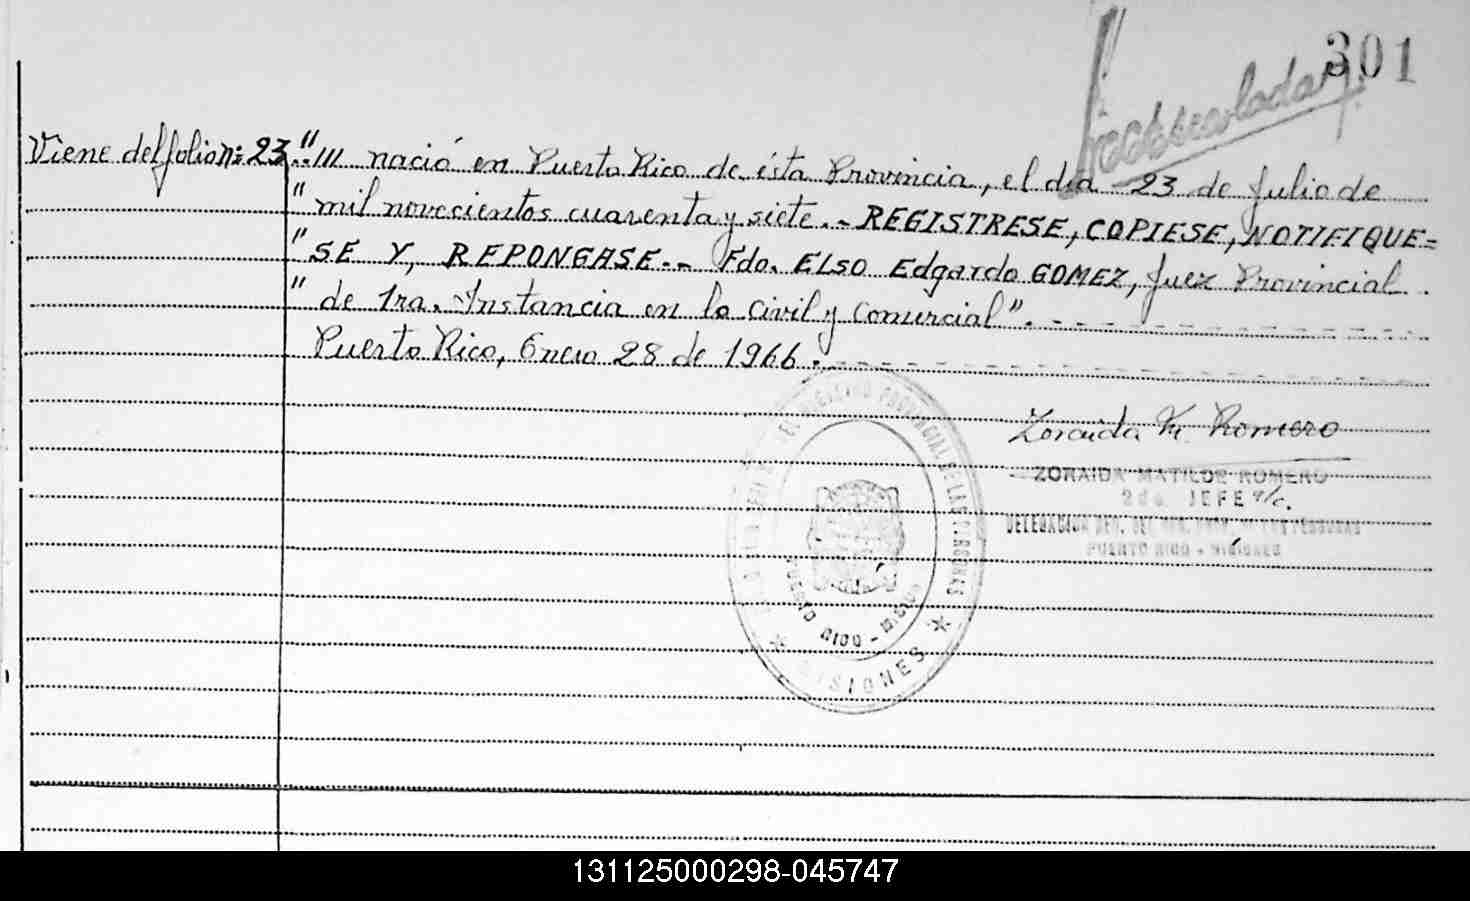 301
Viene del folio nº 23
"..III nació en Puerto Rico de ésta Provincia, el día -23 de Julio de
"mil novecientos cuarenta y siete.- REGISTRESE, COPIESE, NOTIFIQUE=
"SE Y, REPONGASE.- Fdo. ELSO Edgardo GOMEZ, Juez Provincial
"de 1ra. Instancia en lo Civil y Comercial".
Puerto Rico, Enero 28 de 1966.
Zoraida M. Romero
ZORAIDA MATILDE ROMERO
2do. JEFE a/c.
PUERTO RICO - MISIONES
REGISTRO PROVINCIAL DE LAS PERSONAS
PUERTO RICO
MISIONES
131125000298-045747